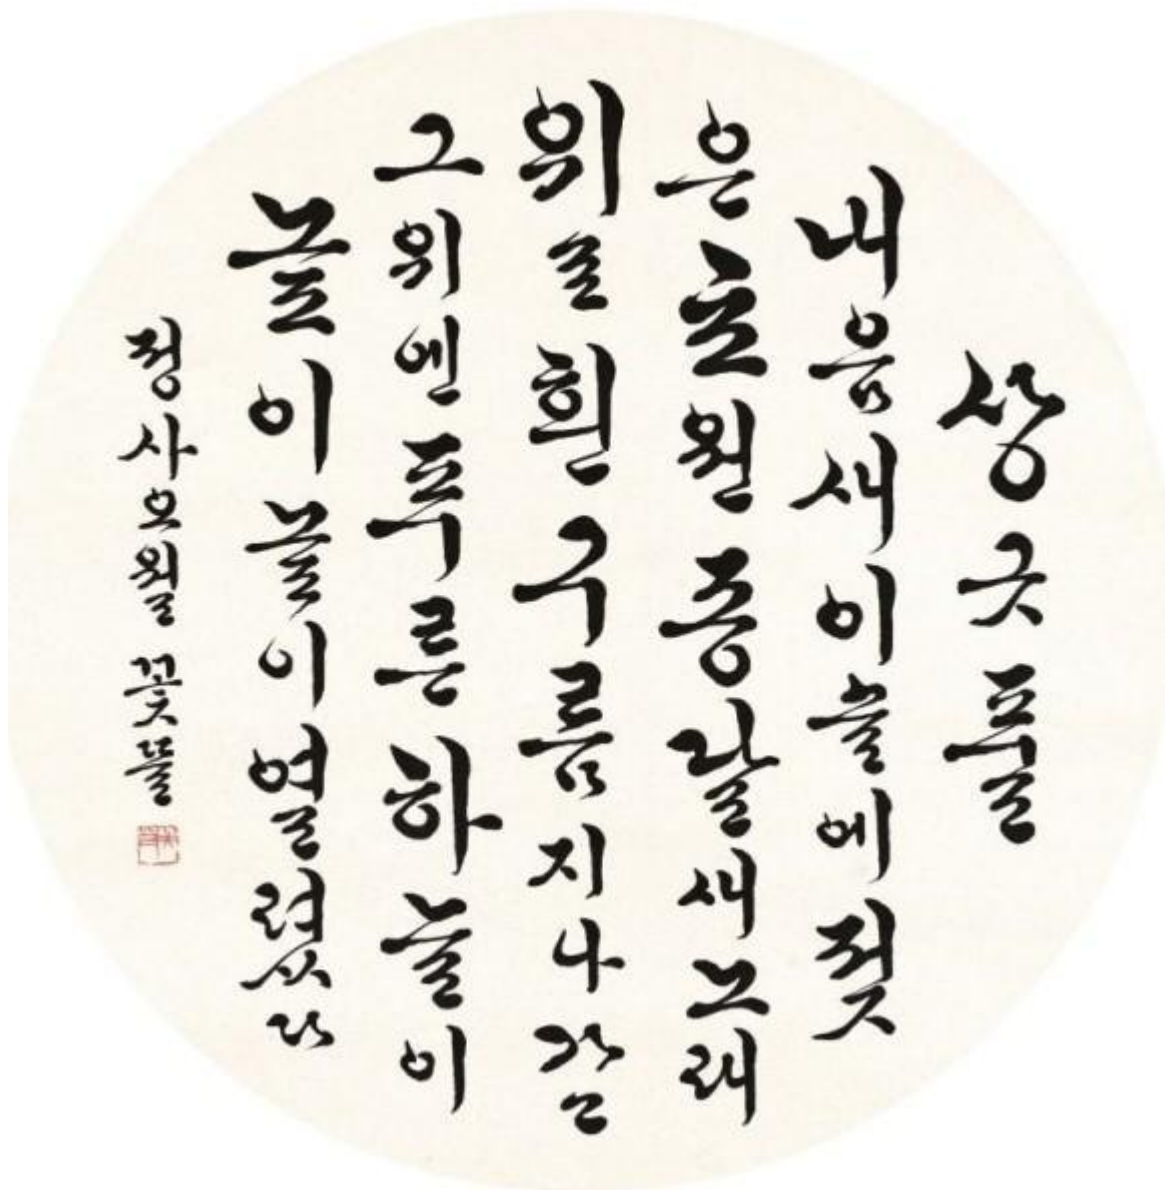 상긋풀
내음새이슬에젖
은초원종달새노래
위를흰구름지나갈
그위엔푸른하늘이
높이높이열렸다
정사오월 꽃뜰